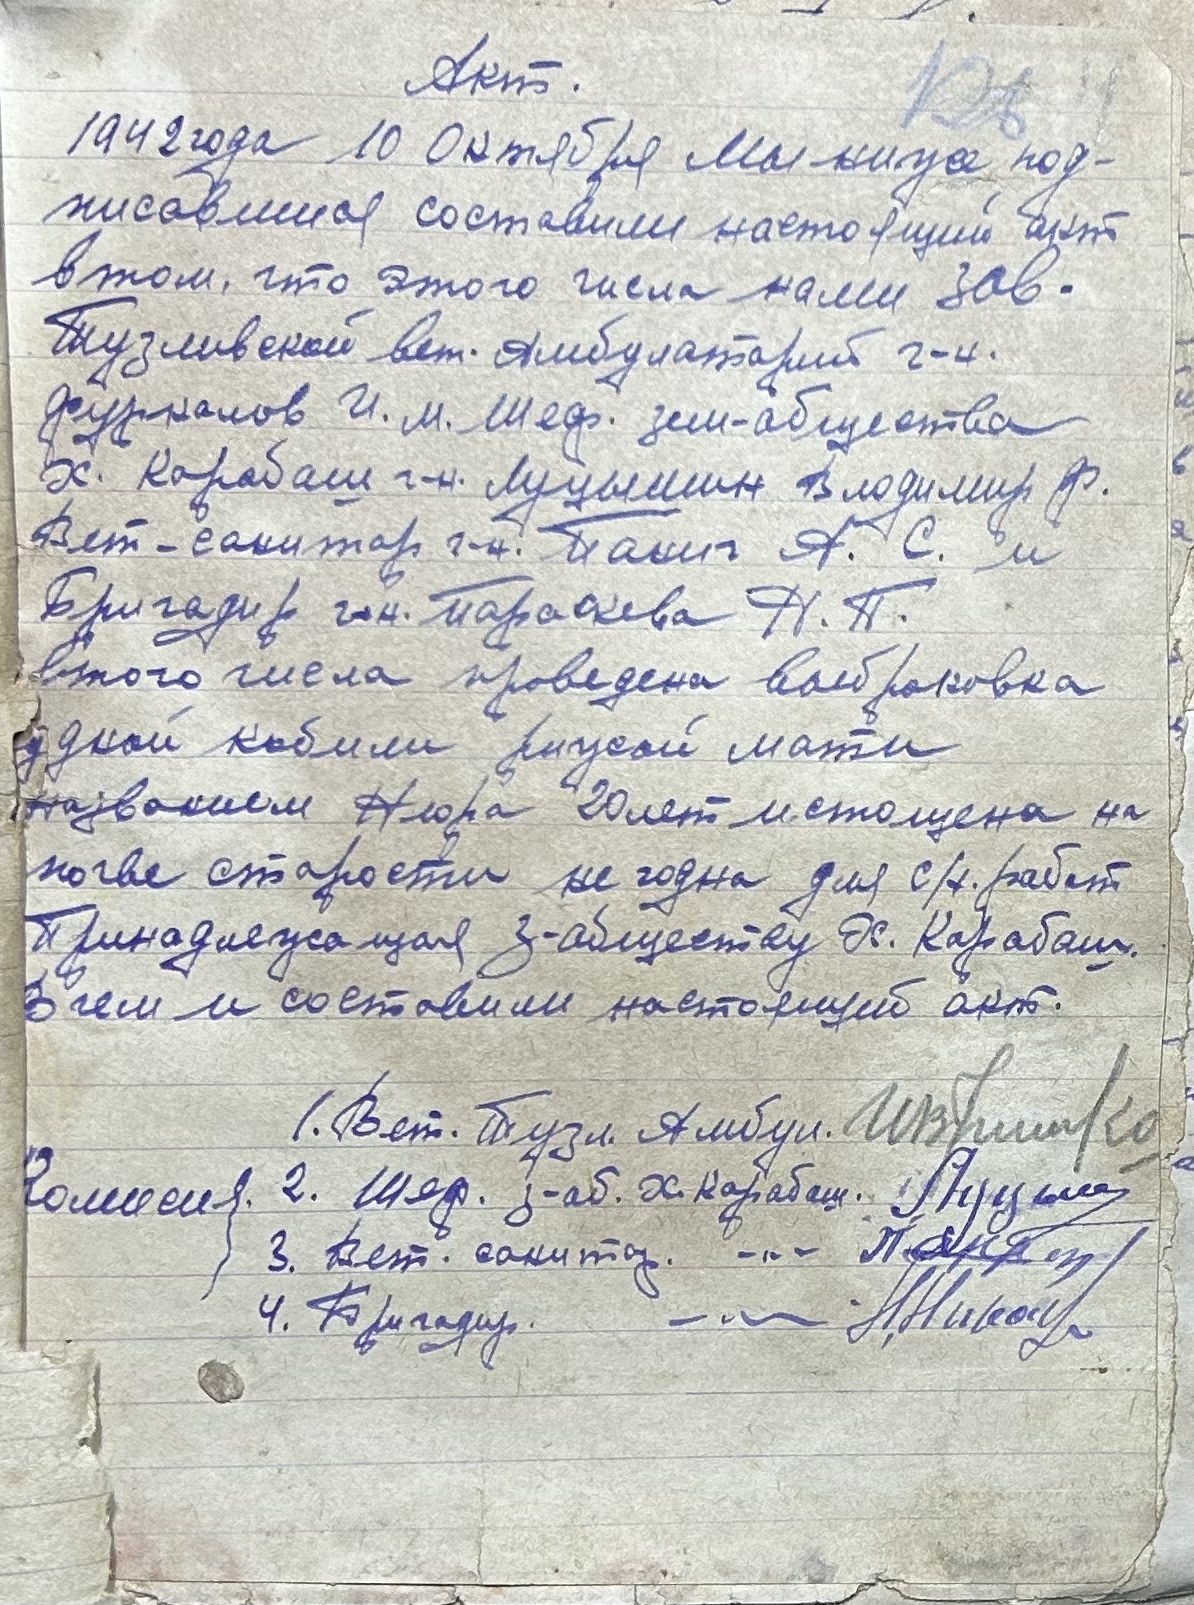 Акт.
1942 года 10 Октября Мы ниже под-
писавшиеся составили настоящий акт
в том, что этого числа нами Зав.
Тузливской вет. Амбулаторий г-н.
Фурналов И. М. Шеф. зем-общества
Х. Карабаш г-н. Луцышин Владимир Ф.
Вет-санитар г-н. Панич А. С. и
Бригадир г-н. Параскева Н. П.
этого числа проведена выбраковка
одной кобили рижой масти
названием Нюра 20 лет истощена на
почве старости не годна для с/х. работ
Принадлежащая З-обществу Х. Карабаш.
В чем и составили настоящий акт.
1. Вет. Тузл. Амбул.
Комисия. 2. Шеф. з-об. Х. Карабаш.
3. Вет. санитар. -"-
4. Бригадир. -"-